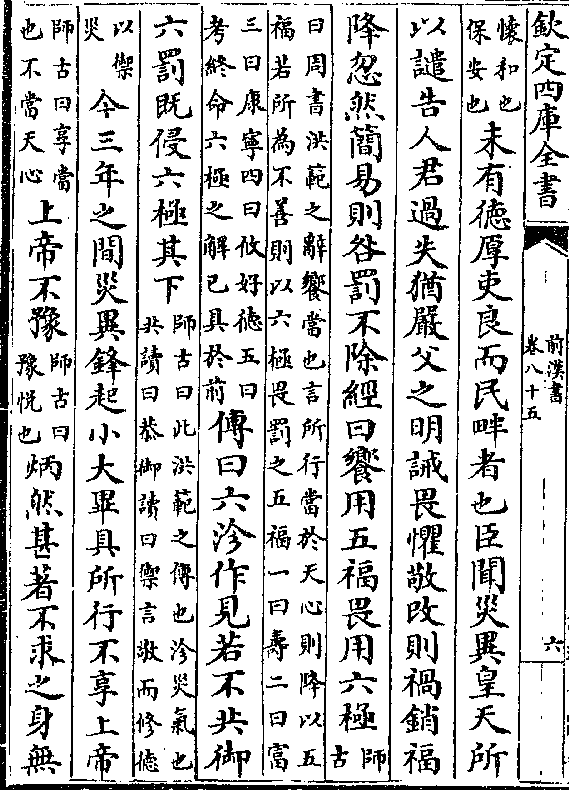 欽定四庫全書
前漢書
卷八十五
六
懷和也
保安也
未有德厚吏良而民畔者也臣聞災異皇天所
以譴告人君過失猶嚴父之明誡畏懼敬改則禍銷福
降忽然簡易則咎罰不除經曰饗用五福畏用六極
師
古
曰周書洪範之辭饗當也言所行當於天心則降以五
福若所為不善則以六極畏罰之五福一曰壽二曰富
三曰康寧四曰攸好德五曰
考終命六極之解已具於前
傳曰六沴作見若不共御
六罰既侵六極其下
師古曰此洪範之傳也沴災氣也
共讀曰恭御讀曰禦言敬而修德
以禦
災
今三年之間災異鋒起小大畢具所行不享上帝
師古曰享當
也不當天心
上帝不豫
師古曰
豫悅也
炳然甚著不求之身無